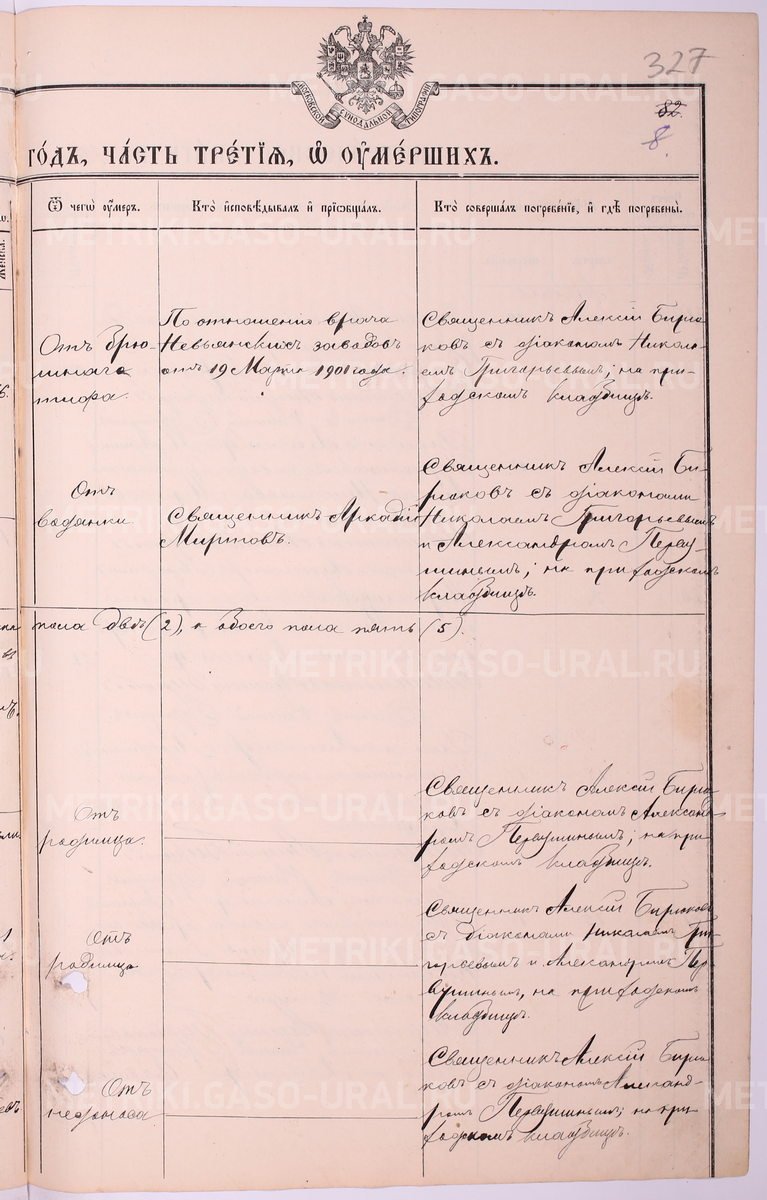 327
82.
8.
МОСКОВСКОЙ СѴНОДАЛЬНОЙ ТИПОГРАФІИ
го́дъ, ча́сть тре́тїѧ, ѡ҆ ᲂу҆ме́ршихъ.
Ѿ чегѡ̀ ᲂу҆́меръ.
Кто̀ и҆сповѣ́дывалъ и҆ прїѡбща́лъ.
Кто̀ соверша́лъ погребе́нїе, и҆ гдѣ̀ погребены̀.
Отъ брю-
шнаго
тифа.
По отношенію врача
Невьянскихъ заводовъ
отъ 19 Марта 1901 года.
Священникъ Алексій Бирю-
ковъ съ діакономъ Никола-
емъ Григорьевымъ; на при-
ходскомъ кладбищѣ.
Отъ
водянки.
Священникъ Аркадій
Миртовъ.
Священникъ Алексій Би-
рюковъ съ діаконами
Николаемъ Григорьевымъ
и Александромъ Перву-
шинымъ; на приходскомъ
кладбищѣ.
пола двѣ (2), а обоего пола пять (5).
Отъ
родимца.
Священникъ Алексій Бирю-
ковъ съ діакономъ Александ-
ромъ Первушинымъ; на при-
ходскомъ кладбищѣ.
Отъ
родимца
Священникъ Алексій Бирюковъ
съ діаконами Николаемъ Гри-
горьевымъ и Александромъ Пер-
вушинымъ, на приходскомъ
кладбищѣ.
Отъ
недоноса
Священникъ Алексій Бирю-
ковъ съ діакономъ Александ-
ромъ Первушинымъ; на при-
ходскомъ кладбищѣ.
METRIKI.GASO-URAL.RU